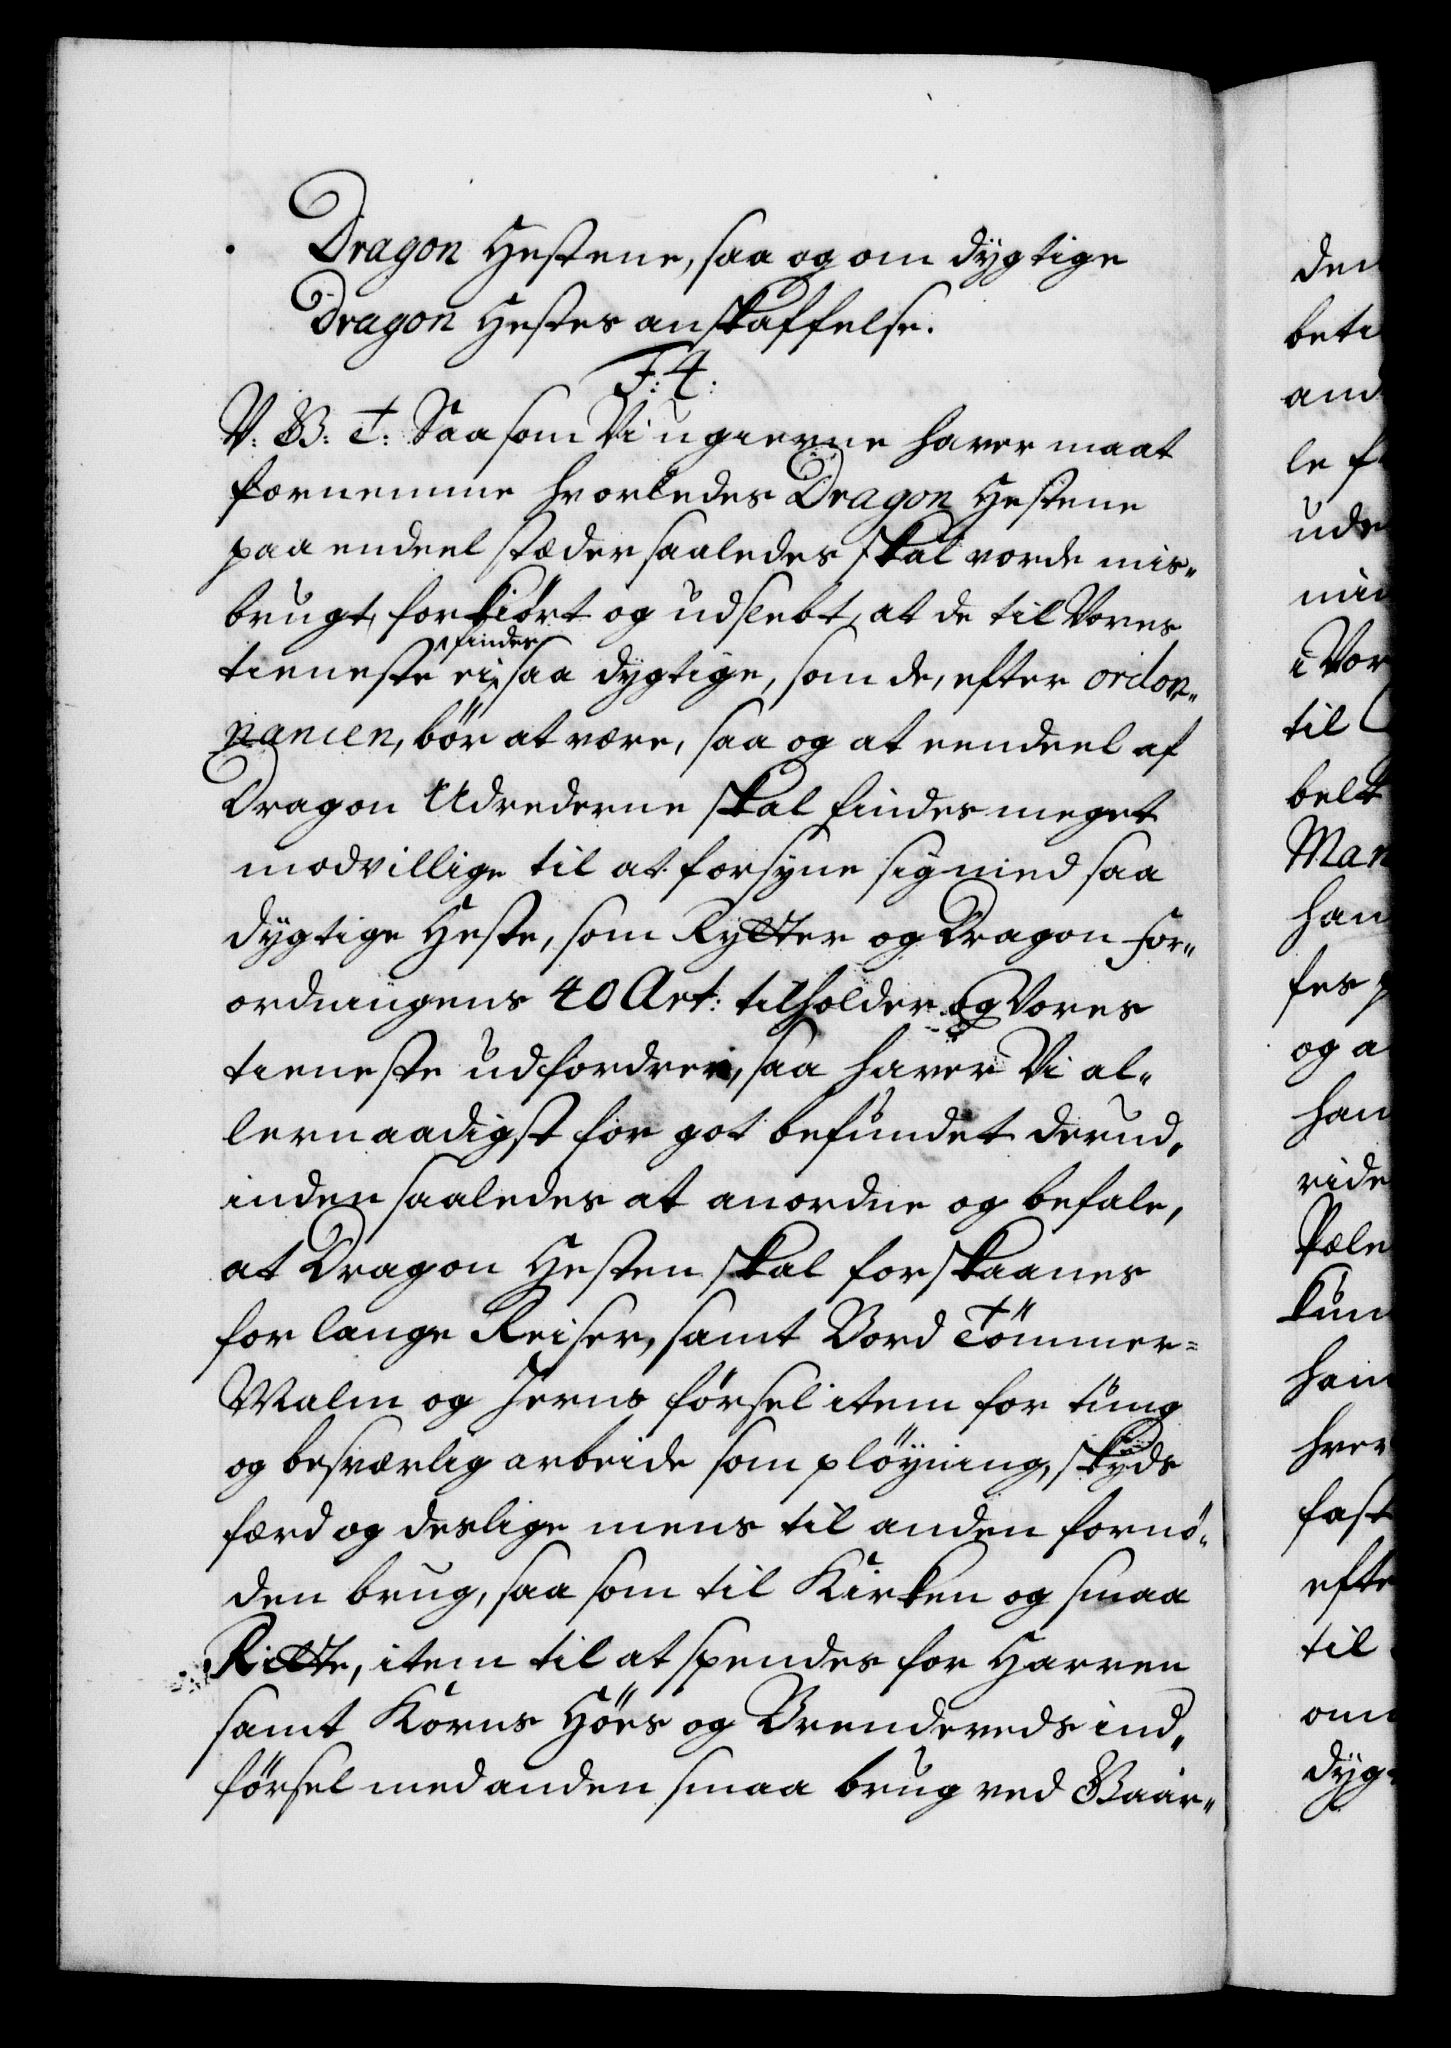 Dragon Hestene, saa og om dygtige
Dragon Hestes anskaffelse.
F: 4:
V: G: T: Saasom Vi ugierne haver maat
fornemme hvorledes Dragon Hestene
paa endeel stæder saaledes skal vorde mis„
brugt, forkiørt og udslebt, at de til Vores
tieneste ei findes saa dygtige, som de, efter ordon„
nancen, bør at være, saa og at eendeel af
Dragon Udrederne skal findes meget
modvillige til at forsyne sig med saa
dygtige Heste, som Rytter og Dragon for„
ordningens 40 Art: tilholder og Vores
tieneste udfordrer, saa haver Vi al„
lernaadigst for got befundet derud„
inden saaledes at anordne og befale,
at Dragon Hesten skal forskaanes
for lange Reiser, samt Bord Tømmer=
Malm og Jerns førsel item for tung
og besværlig arbeide som pløyning, skyds
færd og deslige mens til anden fornø„
den brug, saa som til Kirken og smaa
Ritte, item til at spendes for Harven
samt Korns Høes og Brendeveds ind„
førsel med anden smaa brug ved Gaar„
den
beti
and
le f
ude
min
i Vor
til
belt
Man
han
fes
og a
han
ride
Pæle
kun
ham
hver
fast
efte
til
om
dyg